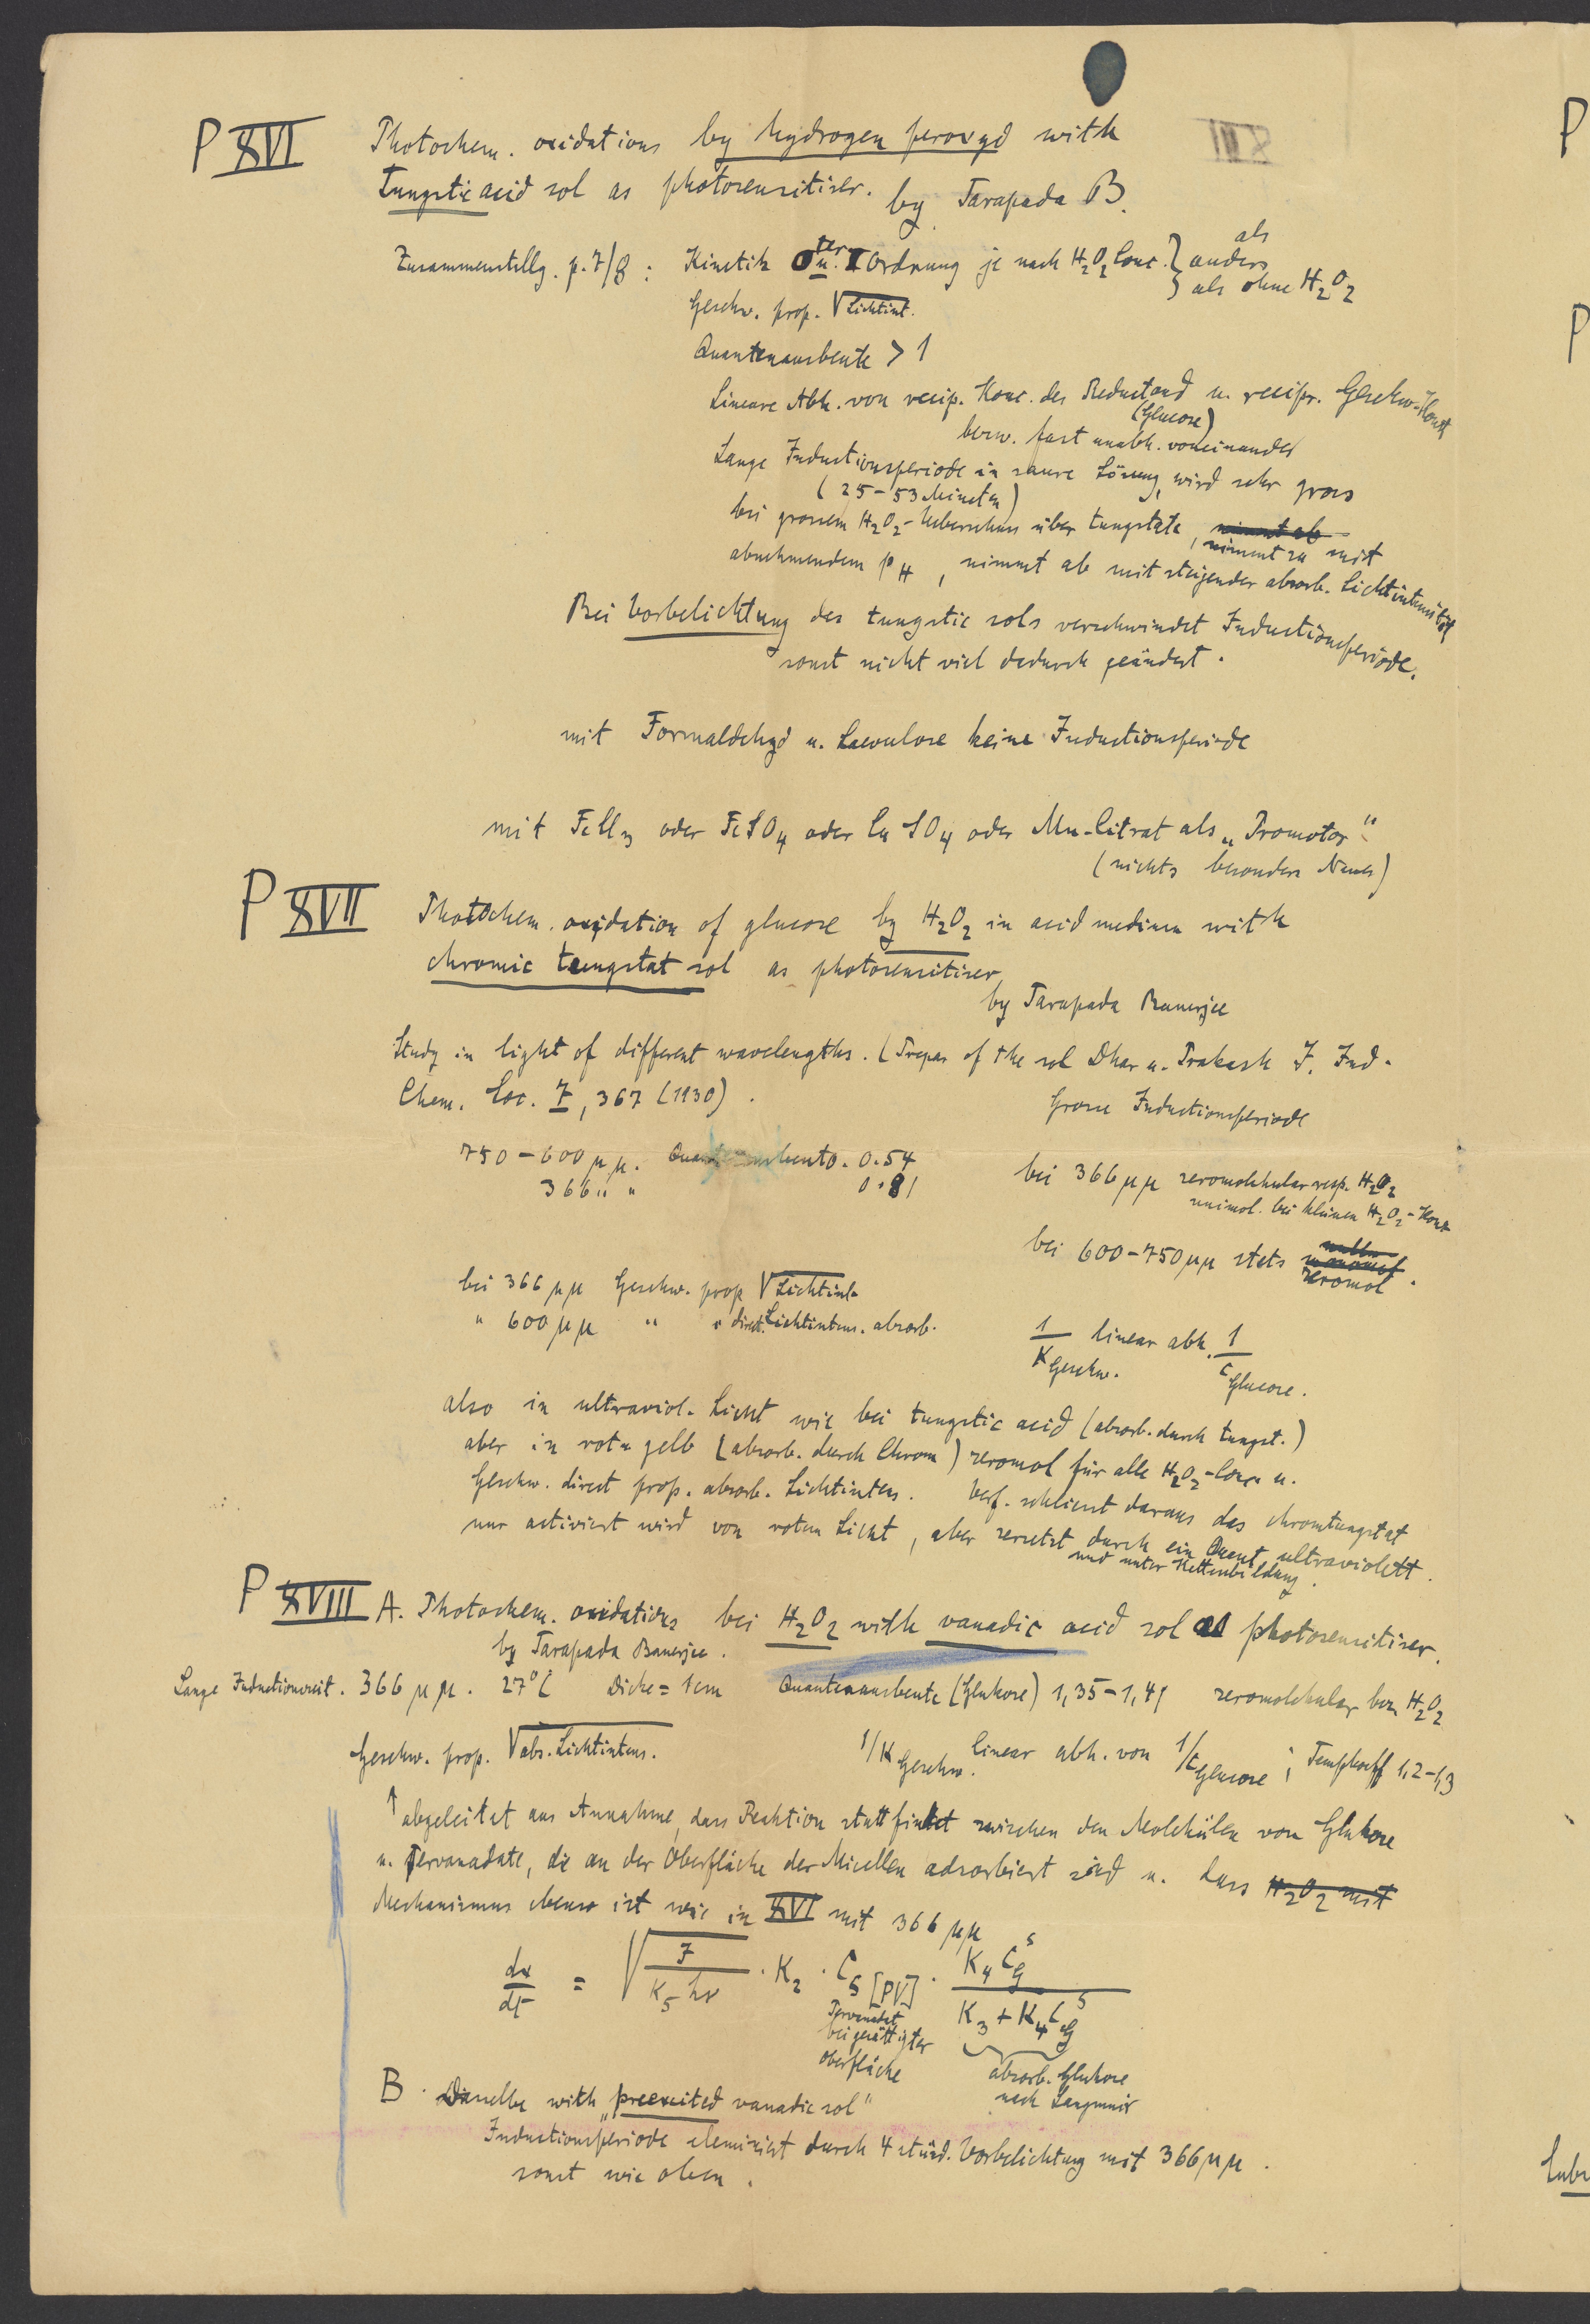 P XVI Photochem. oxidations by hydrogen peroxyd with
Tungstic acid sol as photosensitiser. by Tarapada B.
XIII
Zusammenstellg. p. 7/8 : Kinetik 0 ter u. I Ordnung je nach H2O2 Conc. } als anders als ohne H2O2
Geschw. prop. √Lichtint.
Quantenausbeute > 1
Lineare Abh. von recip. Konc. des Reductand u. recipr. Geschw.-Konst
(Glucose)
bezw. fast unabh. voneinander
Lange Inductionsperiode in saure Lösung, wird sehr gross
(25-53 Minuten)
bei grossem H2O2-Ueberschuss über tungstate, nimmt ab nimmt zu mit
abnehmendem pH, nimmt ab mit steigender absorb. Lichtintensität
Bei Vorbelichtung des tungstic sols verschwindet Inductionsperiode.
sonst nicht viel dadurch geändert.
mit Formaldehyd u. Laevulose keine Inductionsperiode
mit FeCl3 oder FeSO4 oder CuSO4 oder Mn-Citrat als „Promotor“
(nichts besonders Neues)
P XVII Photochem. oxydation of glucose by H2O2 in acid medium with
chromic tungstat sol as photosensitiser
by Tarapada Banerjee
Study in light of different wavelengths. (Prepar of the sol Dhar u. Prakash J. Ind.
Chem. Soc. 7, 367 (1930).
Grosse Inductionsperiode
750-600 μμ. Quantenausbeute. 0.54
366 " " 0.81
bei 366 μμ zeromolekular resp. H2O2
unimol. bei kleinen H2O2-Konz
bei 600-750 μμ stets zeromol.
bei 366 μμ Geschw. prop √Lichtint.
" 600 μμ " " direct. Lichtintens. absorb.
1/K Geschw. linear abh. 1/c Glucose.
also in ultraviol. Licht wie bei tungstic acid (absorb. durch tungst.)
aber in rot u gelb (absorb. durch Chrom) zeromol für alle H2O2-Conc. u.
Geschw. direct prop. absorb. Lichtintens. Verf. schliesst daraus das chromtungstat
nur activiert wird von rotem Licht, aber zersetzt durch ein Quant ultraviolett.
und unter Kettenbildung.
P XVIII A. Photochem. oxidations bei H2O2 with vanadic acid sol as photosensitiser.
by Tarapada Banerjee.
Lange Inductionszeit. 366 μμ. 27°C Dicke = 1 cm Quantenausbeute (Glukose) 1,35-1,41 zeromolekular bez. H2O2
Geschw. prop. √abs. Lichtintens. 1/K Geschw. linear abh. von 1/c Glucose ; Tempkoeff 1,2-1,3
↑ abgeleitet aus Annahme, dass Reaktion stattfindet zwischen den Molekülen von Glukose
u. Pervanadate, die an der Oberfläche der Micellen adsorbiert sind u. dass H2O2 mit
Mechanismus ebenso ist wie in XVI mit 366 μμ
dx/dt = √(J / K5 hν) · K2 · C s [PV] · K4 C g s / (K3 + K4 C g s)
Pervanadat
bei gesättigter
Oberfläche
absorb. Glukose
nach Langmuir
B. Dasselbe with „preexcited vanadic sol“
Inductionsperiode eleminiert durch 4 stünd. Vorbelichtung mit 366 μμ.
sonst wie oben.
P
P